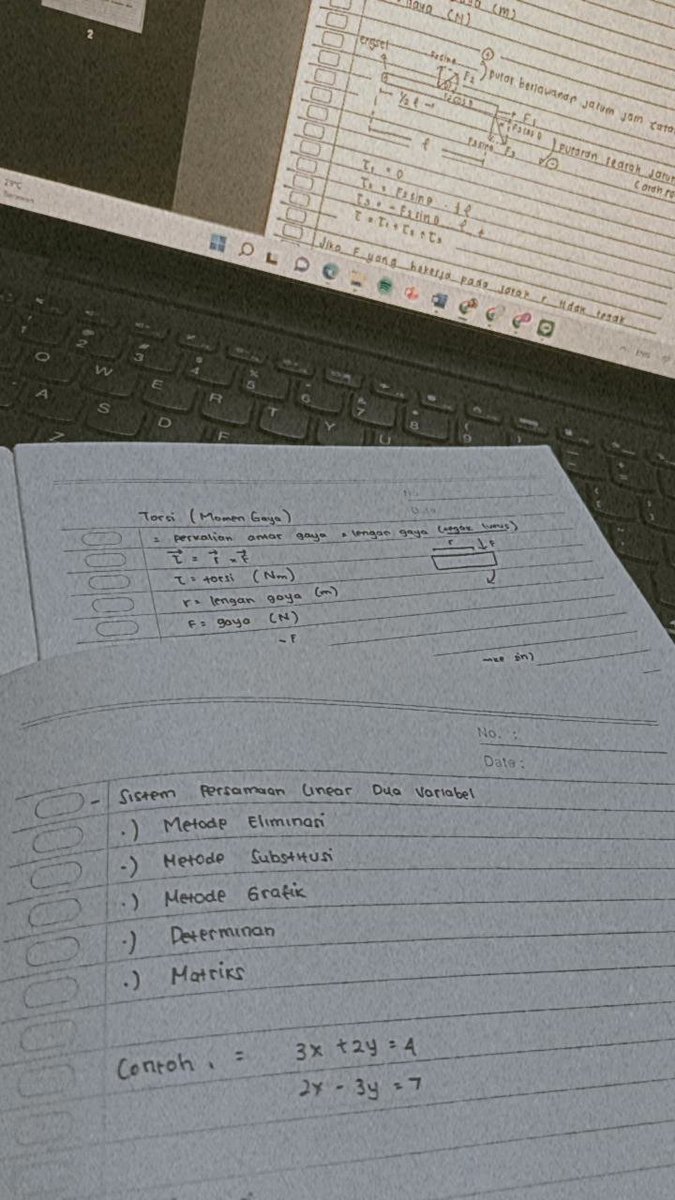 2
gaya (N)
(m)
engsel
F2
putar berlawanan jarum jam
½ ℓ
F1
F3
putaran searah jarum
ℓ
τ1 = 0
τ2 = F2 sin θ . ½ ℓ
τ3 = - F3 sin θ ℓ +
τ = τ1 + τ2 + τ3
Jika F yang bekerja pada jarak r tidak tegak
29°C
ENG
Torsi (Momen Gaya)
= perkalian antar gaya & lengan gaya (tegak lurus)
τ = r × F
r F
τ = torsi (Nm)
r = lengan gaya (m)
F = gaya (N)
- F
sin)
No. :
Date :
- Sistem Persamaan Linear Dua Variabel
.) Metode Eliminasi
.) Metode Substitusi
.) Metode Grafik
.) Determinan
.) Matriks
Contoh . = 3x + 2y = 4
2x - 3y = 7
Q W E R T Y U
A S D F
Z